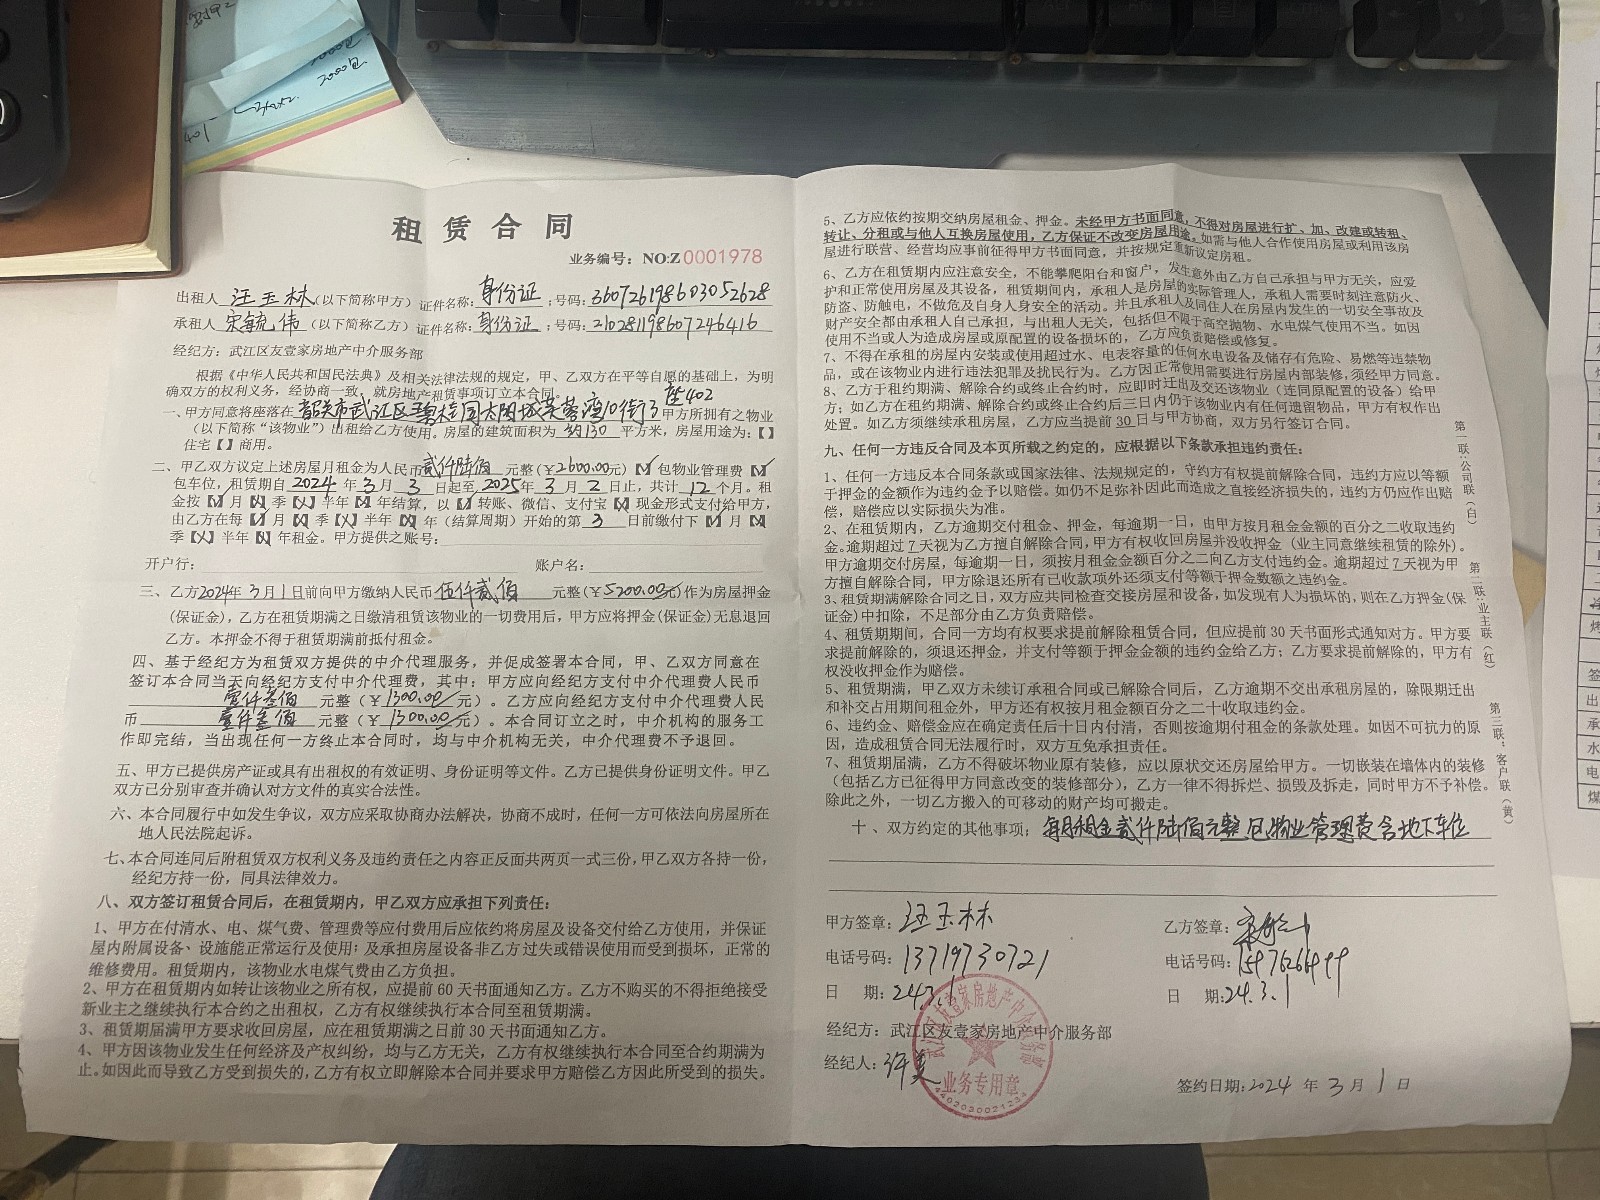 2000包
租赁合同
业务编号：NO:Z0001978
出租人 汪玉林（以下简称甲方）证件名称：身份证；号码：360726198603052628
承租人 宋毓伟（以下简称乙方）证件名称：身份证；号码：210281198607246416
经纪方：武江区友壹家房地产中介服务部
根据《中华人民共和国民法典》及相关法律法规的规定，甲、乙双方在平等自愿的基础上，为明
确双方的权利义务，经协商一致，就房地产租赁事项订立本合同。
一、甲方同意将座落在韶关市武江区碧桂园太阳城芙蓉湾10街13座402甲方所拥有之物业
（以下简称“该物业”）出租给乙方使用。房屋的建筑面积为 约130 平方米，房屋用途为：【】
住宅【】商用。
二、甲乙双方议定上述房屋月租金为人民币贰仟陆佰元整（￥2600.00元）【✓】包物业管理费【✓】
包车位，租赁期自2024年3月3日起至2025年3月2日止，共计12个月。租
金按【✓】月【X】季【X】半年【X】年结算，以【✓】转账、微信、支付宝【X】现金形式支付给甲方，
由乙方在每【✓】月【X】季【X】半年【X】年（结算周期）开始的第3日前缴付下【✓】月【X】
季【X】半年【X】年租金。甲方提供之账号：
开户行： 账户名：
三、乙方2024年3月1日前向甲方缴纳人民币伍仟贰佰元整（￥5200.00元）作为房屋押金
（保证金），乙方在租赁期满之日缴清租赁该物业的一切费用后，甲方应将押金(保证金)无息退回
乙方。本押金不得于租赁期满前抵付租金。
四、基于经纪方为租赁双方提供的中介代理服务，并促成签署本合同，甲、乙双方同意在
签订本合同当天向经纪方支付中介代理费，其中：甲方应向经纪方支付中介代理费人民币
壹仟叁佰元整（￥1300.00元）。乙方应向经纪方支付中介代理费人民
币壹仟叁佰元整（￥1300.00元）。本合同订立之时，中介机构的服务工
作即完结，当出现任何一方终止本合同时，均与中介机构无关，中介代理费不予退回。
五、甲方已提供房产证或具有出租权的有效证明、身份证明等文件。乙方已提供身份证明文件。甲乙
双方已分别审查并确认对方文件的真实合法性。
六、本合同履行中如发生争议，双方应采取协商办法解决，协商不成时，任何一方可依法向房屋所在
地人民法院起诉。
七、本合同连同后附租赁双方权利义务及违约责任之内容正反面共两页一式三份，甲乙双方各持一份，
经纪方持一份，同具法律效力。
八、双方签订租赁合同后，在租赁期内，甲乙双方应承担下列责任：
1、甲方在付清水、电、煤气费、管理费等应付费用后应依约将房屋及设备交付给乙方使用，并保证
屋内附属设备、设施能正常运行及使用；及承担房屋设备非乙方过失或错误使用而受到损坏，正常的
维修费用。租赁期内，该物业水电煤气费由乙方负担。
2、甲方在租赁期内如转让该物业之所有权，应提前60天书面通知乙方。乙方不购买的不得拒绝接受
新业主之继续执行本合约之出租权，乙方有权继续执行本合同至租赁期满。
3、租赁期届满甲方要求收回房屋，应在租赁期满之日前30天书面通知乙方。
4、甲方因该物业发生任何经济及产权纠纷，均与乙方无关，乙方有权继续执行本合同至合约期满为
止。如因此而导致乙方受到损失的，乙方有权立即解除本合同并要求甲方赔偿乙方因此所受到的损失。
5、乙方应依约按期交纳房屋租金、押金。未经甲方书面同意，不得对房屋进行扩、加、改建或转租、
转让、分租或与他人互换房屋使用，乙方保证不改变房屋用途。如需与他人合作使用房屋或利用该房
屋进行联营、经营均应事前征得甲方书面同意，并按规定重新议定房租。
6、乙方在租赁期内应注意安全，不能攀爬阳台和窗户，发生意外由乙方自己承担与甲方无关，应爱
护和正常使用房屋及其设备，租赁期间内，承租人是房屋的实际管理人，承租人需要时刻注意防火、
防盗、防触电，不做危及自身人身安全的活动。并且承租人及同住人在房屋内发生的一切安全事故及
财产安全都由承租人自己承担，与出租人无关，包括但不限于高空抛物、水电煤气使用不当。如因
使用不当或人为造成房屋或原配置的设备损坏的，乙方应负责赔偿或修复。
7、不得在承租的房屋内安装或使用超过水、电表容量的任何水电设备及储存有危险、易燃等违禁物
品，或在该物业内进行违法犯罪及扰民行为。乙方因正常使用需要进行房屋内部装修，须经甲方同意。
8、乙方于租约期满、解除合约或终止合约时，应即时迁出及交还该物业（连同原配置的设备）给甲
方；如乙方在租约期满、解除合约或终止合约后三日内仍于该物业内有任何遗留物品，甲方有权作出
处置。如乙方须继续承租房屋，乙方应当提前30日与甲方协商，双方另行签订合同。
九、任何一方违反合同及本页所载之约定的，应根据以下条款承担违约责任：
1、任何一方违反本合同条款或国家法律、法规规定的，守约方有权提前解除合同，违约方应以等额
于押金的金额作为违约金予以赔偿。如仍不足弥补因此而造成之直接经济损失的，违约方仍应作出赔
偿，赔偿应以实际损失为准。
2、在租赁期内，乙方逾期交付租金、押金，每逾期一日，由甲方按月租金金额的百分之二收取违约
金。逾期超过7天视为乙方擅自解除合同，甲方有权收回房屋并没收押金（业主同意继续租赁的除外）。
甲方逾期交付房屋，每逾期一日，须按月租金金额百分之二向乙方支付违约金。逾期超过7天视为甲
方擅自解除合同，甲方除退还所有已收款项外还须支付等额于押金数额之违约金。
3、租赁期满解除合同之日，双方应共同检查交接房屋和设备，如发现有人为损坏的，则在乙方押金(保
证金)中扣除，不足部分由乙方负责赔偿。
4、租赁期期间，合同一方均有权要求提前解除租赁合同，但应提前30天书面形式通知对方。甲方要
求提前解除的，须退还押金，并支付等额于押金金额的违约金给乙方；乙方要求提前解除的，甲方有
权没收押金作为赔偿。
5、租赁期满，甲乙双方未续订承租合同或已解除合同后，乙方逾期不交出承租房屋的，除限期迁出
和补交占用期间租金外，甲方还有权按月租金金额百分之二十收取违约金。
6、违约金、赔偿金应在确定责任后十日内付清，否则按逾期付租金的条款处理。如因不可抗力的原
因，造成租赁合同无法履行时，双方互免承担责任。
7、租赁期届满，乙方不得破坏物业原有装修，应以原状交还房屋给甲方。一切嵌装在墙体内的装修
（包括乙方已征得甲方同意改变的装修部分），乙方一律不得拆烂、损毁及拆走，同时甲方不予补偿。
除此之外，一切乙方搬入的可移动的财产均可搬走。
十、双方约定的其他事项：每月租金贰仟陆佰元整包物业管理费含地下车位
甲方签章：汪玉林 乙方签章：
电话号码：13719730721 电话号码：
日 期：24.3.1 日 期：24.3.1
经纪方：武江区友壹家房地产中介服务部
经纪人：许美
签约日期：2024年3月1日
武江区友壹家房地产中介服务部
业务专用章
4402030021234
第一联：公司联（白）
第二联：业主联（红）
第三联：客户联（黄）